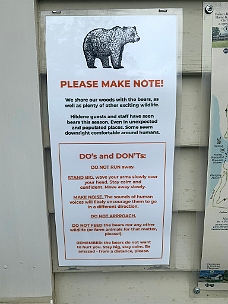 PLEASE MAKE NOTE!
We share our woods with the bears, as
well as plenty of other exciting wildlife.
Hildene guests and staff have seen
bears this season. Even in unexpected
and populated places. Some seem
downright comfortable around humans.
DO's and DON'Ts:
DO NOT RUN away.
STAND BIG, wave your arms slowly over
your head. Stay calm and
confident. Move away slowly.
MAKE NOISE. The sounds of human
voices will likely encourage them to go
in a different direction.
DO NOT APPROACH.
DO NOT FEED the bears nor any other
wildlife (or farm animals for that matter,
please!)
REMEMBER: the bears do not want
to hurt you. Stay big, stay calm. Be
amazed - from a distance, please.